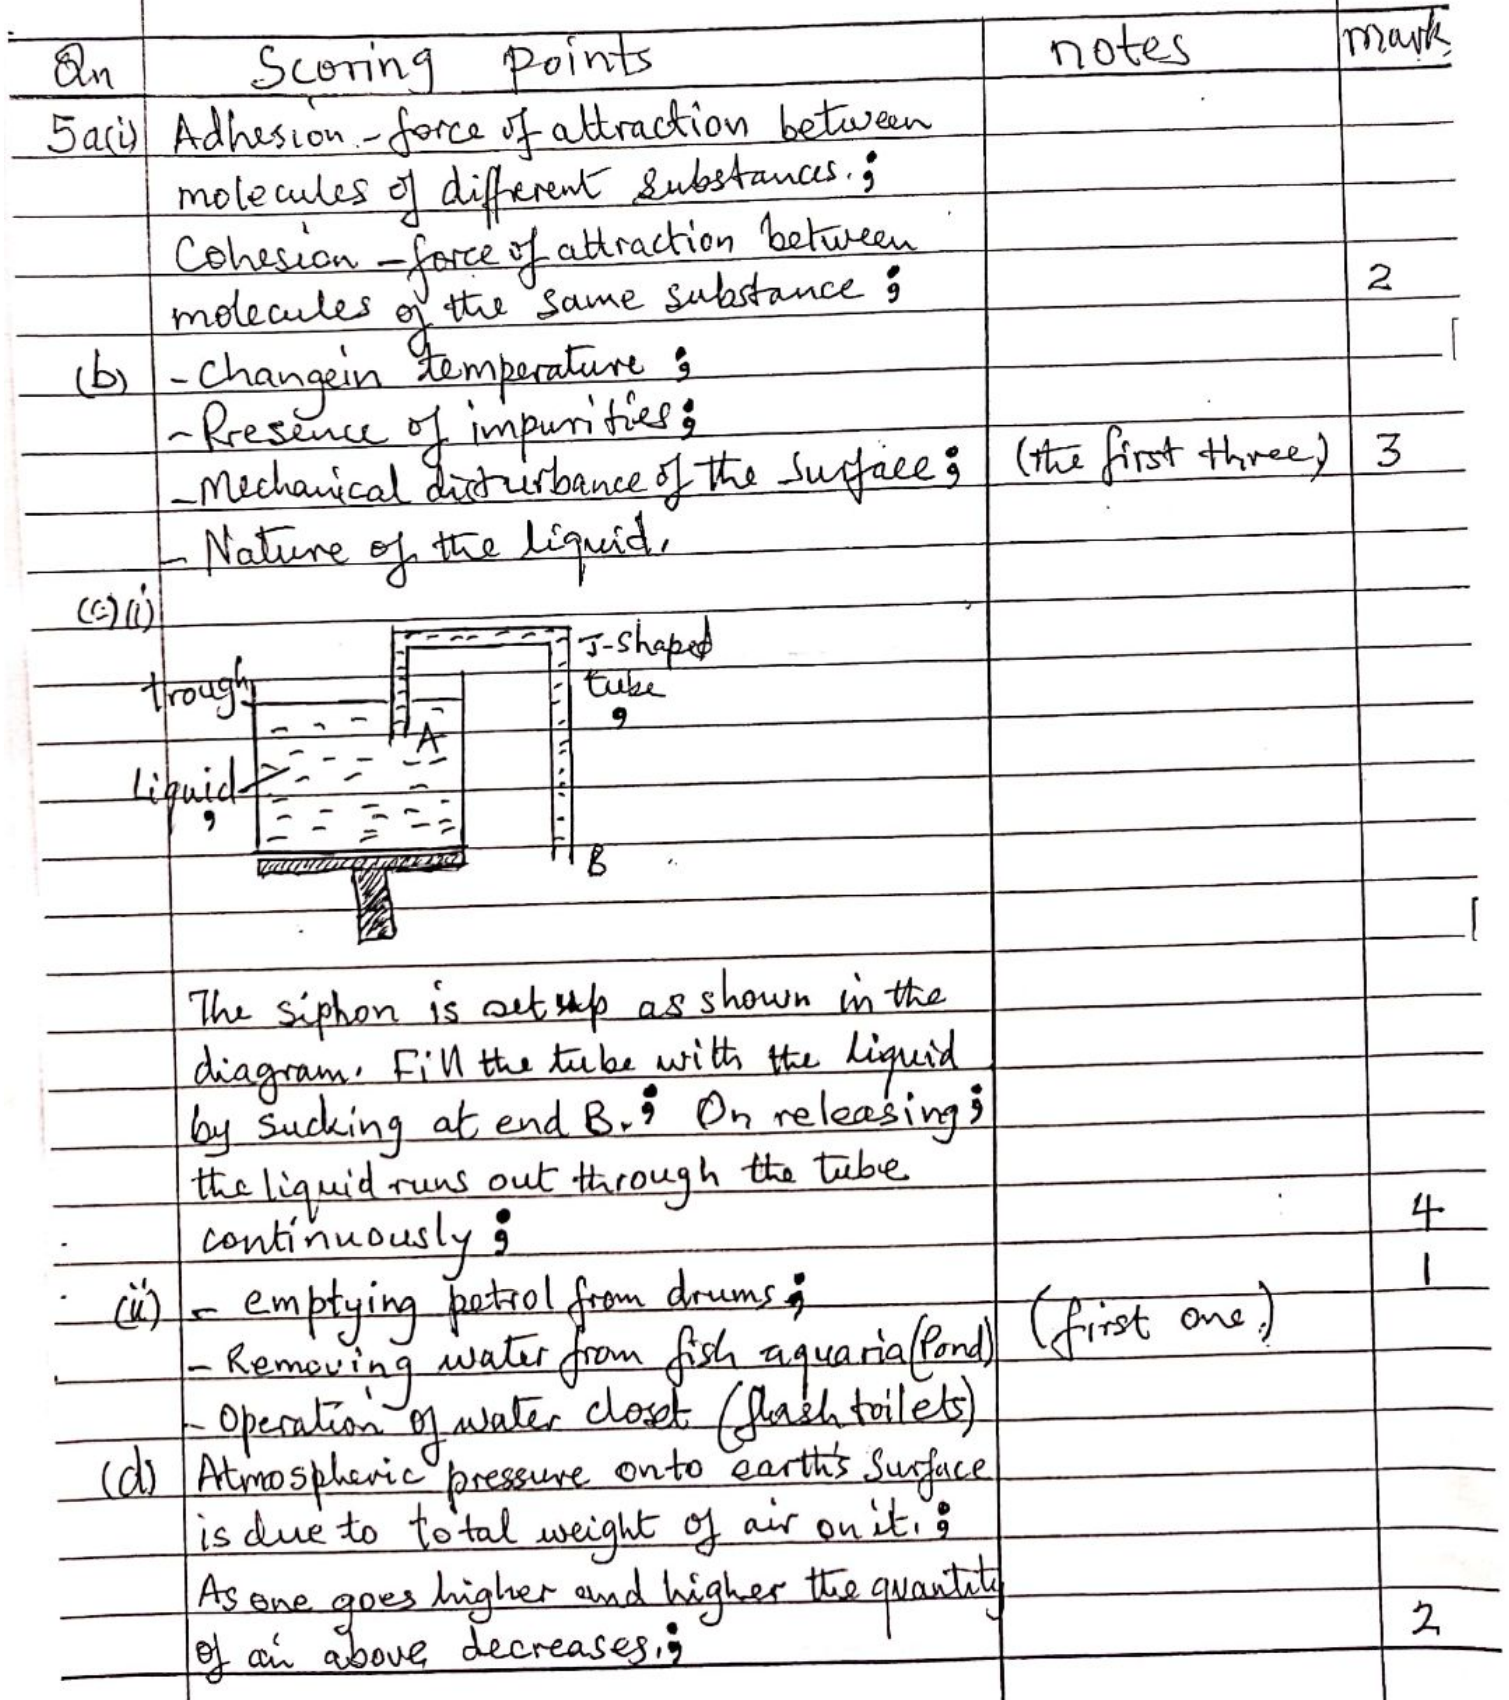 Qn Scoring points notes mark
5a(i) Adhesion - force of attraction between
molecules of different substances. ;
Cohesion - force of attraction between
molecules of the same substance ; 2
(b) - Changein temperature ;
- Presence of impurities ;
- Mechanical disturbance of the surface ; (the first three) 3
- Nature of the liquid.
(c)(i)
J-shaped
trough tube
;
A
Liquid
;
B
The siphon is set up as shown in the
diagram. Fill the tube with the liquid
by sucking at end B. ; On releasing ;
the liquid runs out through the tube
continuously ; 4
(ii) - emptying petrol from drums ; 1
- Removing water from fish aquaria (Pond) (first one.)
- Operation of water closet (flash toilets)
(d) Atmospheric pressure onto earth's surface
is due to total weight of air on it. ;
As one goes higher and higher the quantity
of air above decreases. ; 2